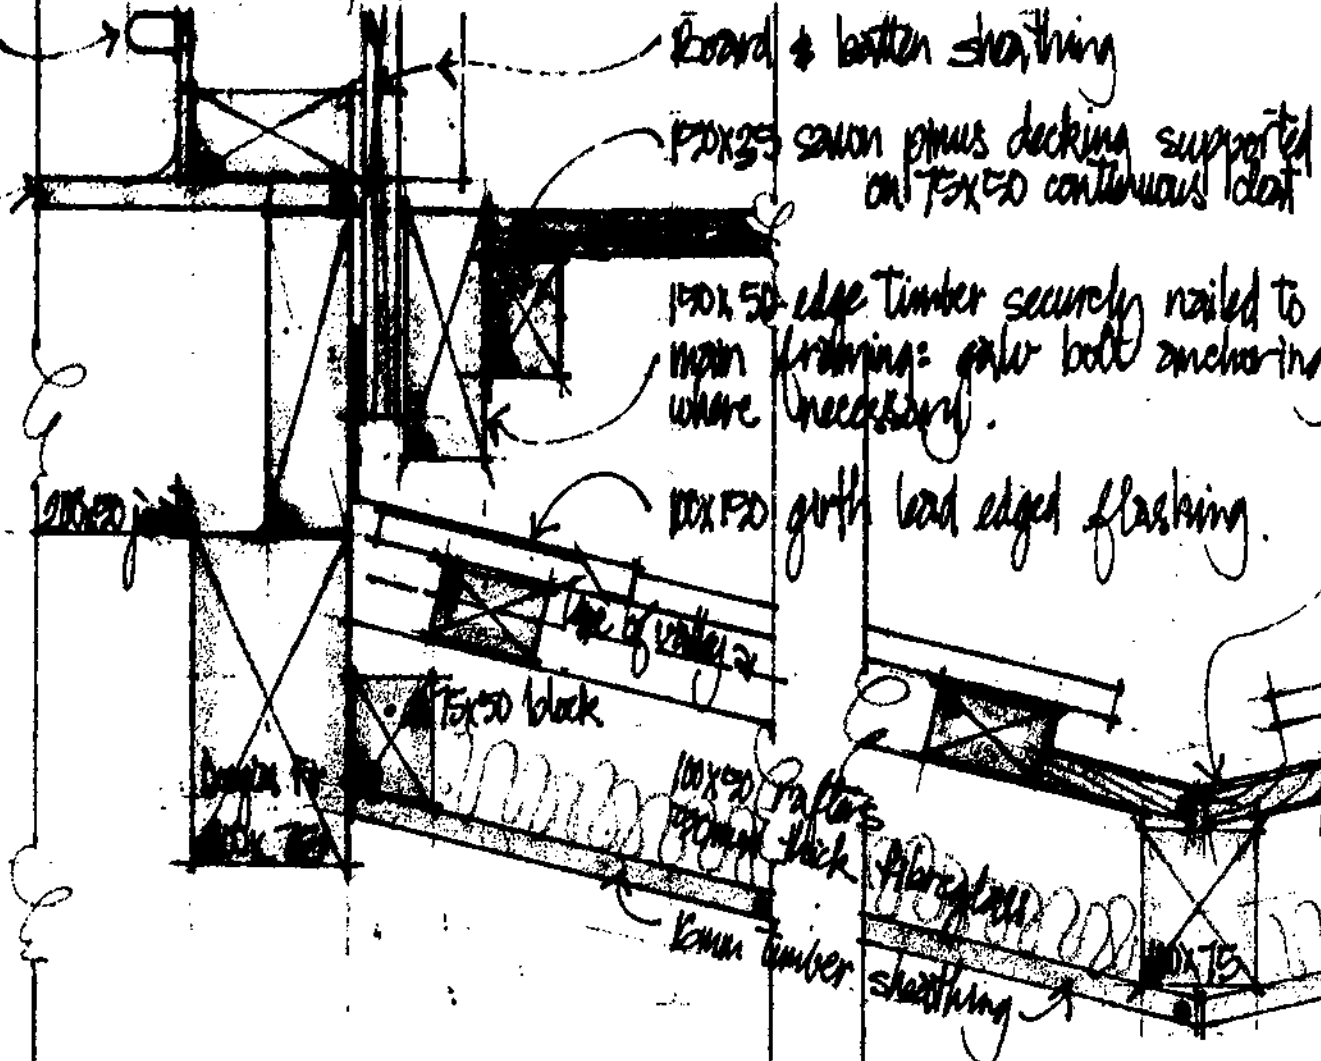 Board & batten sheathing
150x35 sawn pinus decking supported
on 75x50 continuous cleat
150x50 edge timber securely nailed to
main framing: galv bolt anchoring
where necessary.
200x50 joist
100x150 girth lead edged flashing.
line of valley
75x50 block
100x50 rafters
50mm thick fibreglass
Douglas Fir
x 75
16mm timber sheathing
100x75